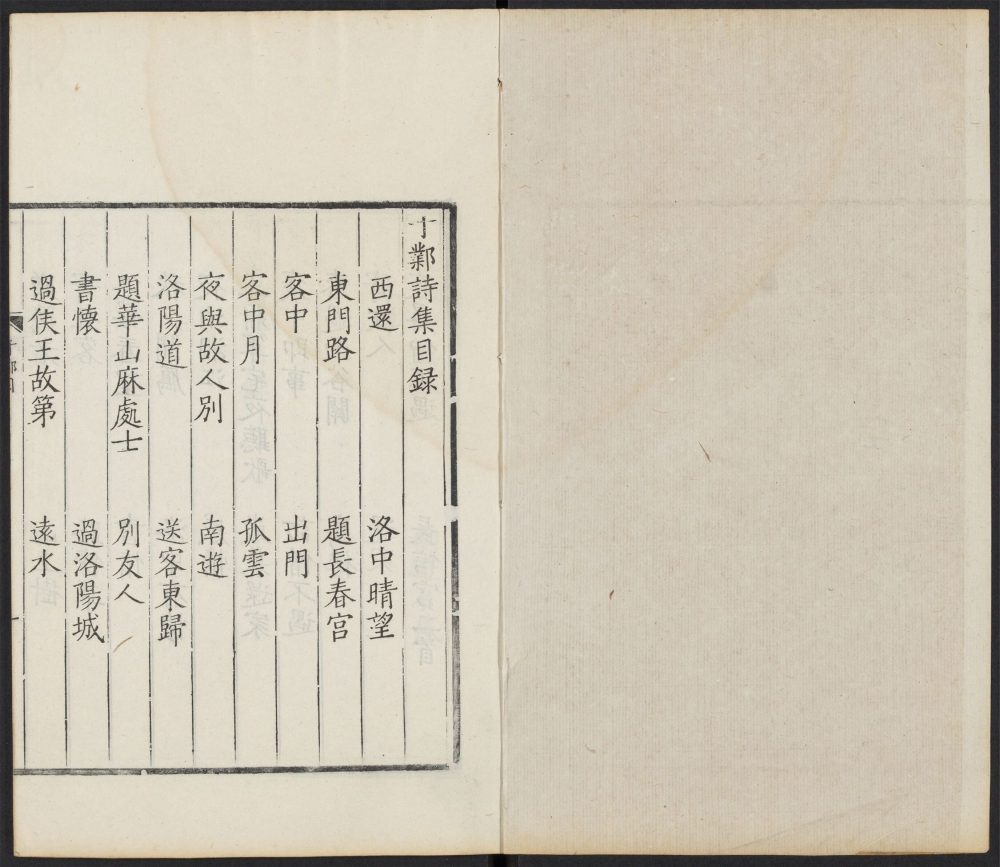 于鄴詩集目録
西還 洛中晴望
東門路 題長春宫
客中 出門
客中月 孤雲
夜與故人别 南遊
洛陽道 送客東歸
題華山麻處士 别友人
書懷 過洛陽城
過侯王故第 遠水